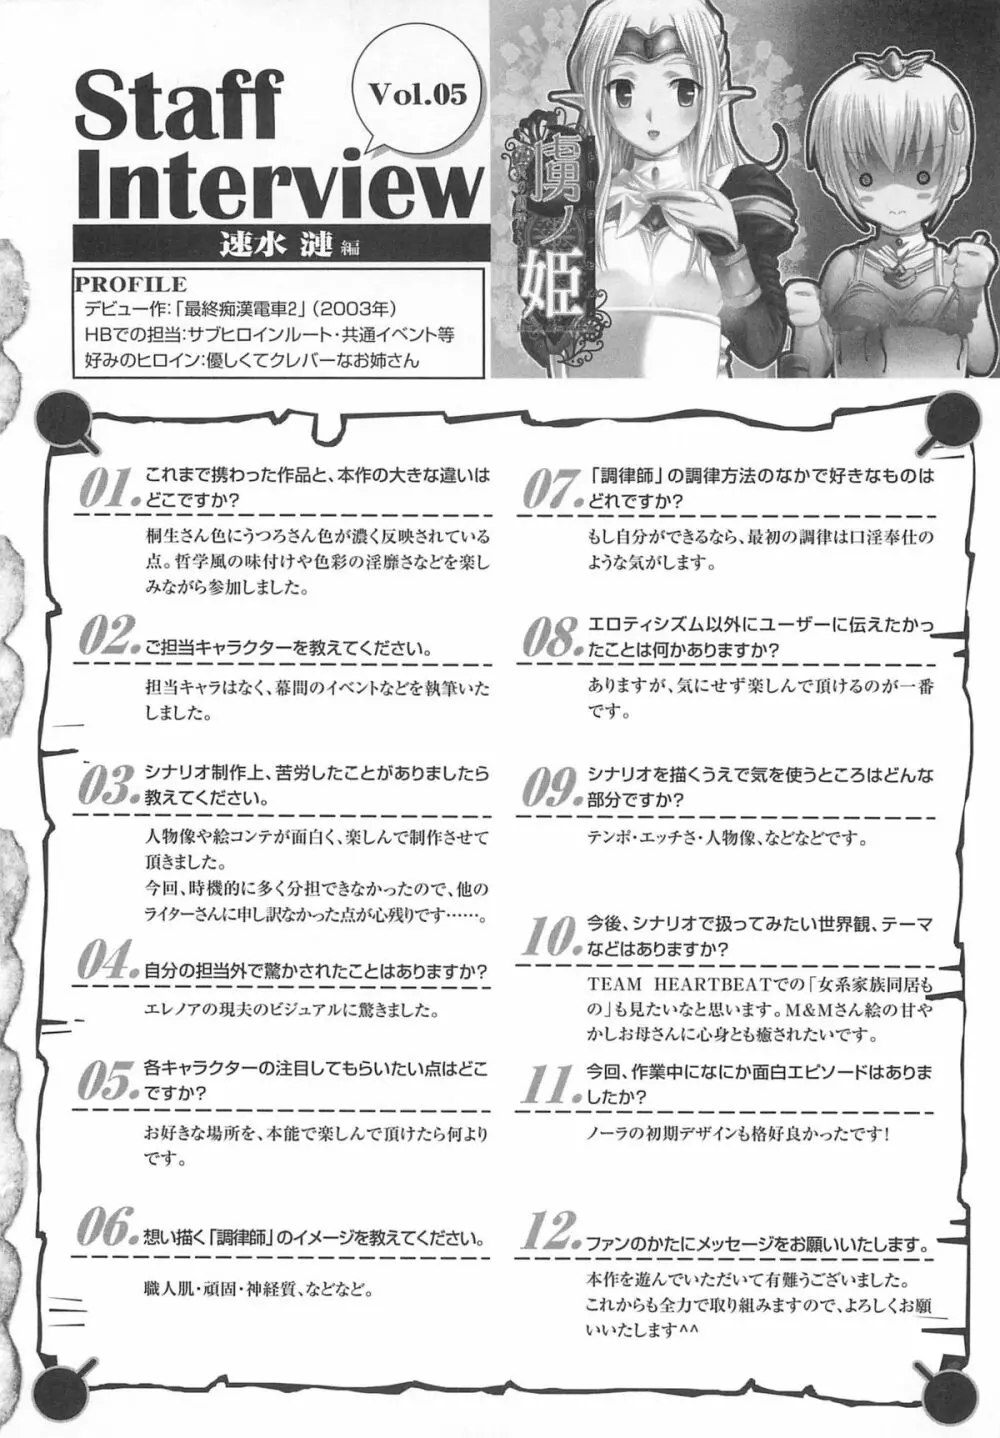 Staff
Interview
Vol.05
速水 漣 編
虜ノ姫
PROFILE
デビュー作：「最終痴漢電車2」（2003年）
HBでの担当：サブヒロインルート・共通イベント等
好みのヒロイン：優しくてクレバーなお姉さん
01. これまで携わった作品と、本作の大きな違いは
どこですか？
桐生さん色にうつろさん色が濃く反映されている
点。哲学風の味付けや色彩の淫靡さなどを楽し
みながら参加しました。
02. ご担当キャラクターを教えてください。
担当キャラはなく、幕間のイベントなどを執筆いた
しました。
03. シナリオ制作上、苦労したことがありましたら
教えてください。
人物像や絵コンテが面白く、楽しんで制作させて
頂きました。
今回、時機的に多く分担できなかったので、他の
ライターさんに申し訳なかった点が心残りです……。
04. 自分の担当外で驚かされたことはありますか？
エレノアの現夫のビジュアルに驚きました。
05. 各キャラクターの注目してもらいたい点はどこ
ですか？
お好きな場所を、本能で楽しんで頂けたら何より
です。
06. 想い描く「調律師」のイメージを教えてください。
職人肌・頑固・神経質、などなど。
07. 「調律師」の調律方法のなかで好きなものは
どれですか？
もし自分ができるなら、最初の調律は口淫奉仕の
ような気がします。
08. エロティシズム以外にユーザーに伝えたかっ
たことは何かありますか？
ありますが、気にせず楽しんで頂けるのが一番
です。
09. シナリオを描くうえで気を使うところはどんな
部分ですか？
テンポ・エッチさ・人物像、などなどです。
10. 今後、シナリオで扱ってみたい世界観、テーマ
などはありますか？
TEAM HEARTBEATでの「女系家族同居も
の」も見たいなと思います。M&Mさん絵の甘や
かしお母さんに心身とも癒されたいです。
11. 今回、作業中になにか面白エピソードはありま
したか？
ノーラの初期デザインも格好良かったです！
12. ファンのかたにメッセージをお願いいたします。
本作を遊んでいただいて有難うございました。
これからも全力で取り組みますので、よろしくお願
いいたします^^